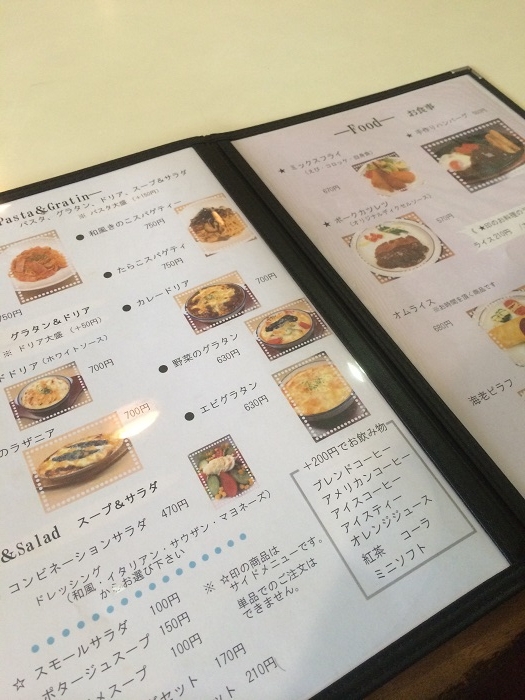 Pasta&Gratin—
パスタ、グラタン、ドリア、スープ&サラダ
※ パスタ大盛 (+150円)
● 和風きのこスパゲティ
750円
750円
● たらこスパゲティ
750円
グラタン&ドリア
※ ドリア大盛 (+50円)
● カレードリア
700円
ドドリア(ホワイトソース)
700円
● 野菜のグラタン
630円
のラザニア
700円
● エビグラタン
630円
&Salad スープ&サラダ
コンビネーションサラダ 470円
ドレッシング
(和風・イタリアン・サウザン・マヨネーズ)
からお選び下さい
※ ☆印の商品は
サイドメニューです。
単品でのご注文は
できません。
☆ スモールサラダ 100円
ポタージュスープ 150円
スープ 100円
セット 170円
ット 210円
+200円でお飲み物
ブレンドコーヒー
アメリカンコーヒー
アイスコーヒー
アイスティー
オレンジジュース
紅茶 コーラ
ミニソフト
—Food— お食事
★ ミックスフライ
★ 手作りハンバーグ
★ ポークカツレツ
(オリジナルデミグルソース)
ライス210円
オムライス
※お時間を頂く商品です
680円
海老ピラフ